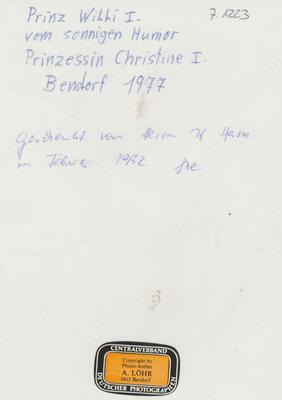 7.1223
Prinz Willi I.
vom sonnigen Humor
Prinzessin Christine I.
Bendorf 1977
Geschenkt von Herrn
im Februar 1982
CENTRALVERBAND
Copyright by
Photo-Atelier
A. LÖHR
5413 Bendorf
DEUTSCHER PHOTOGRAPHEN